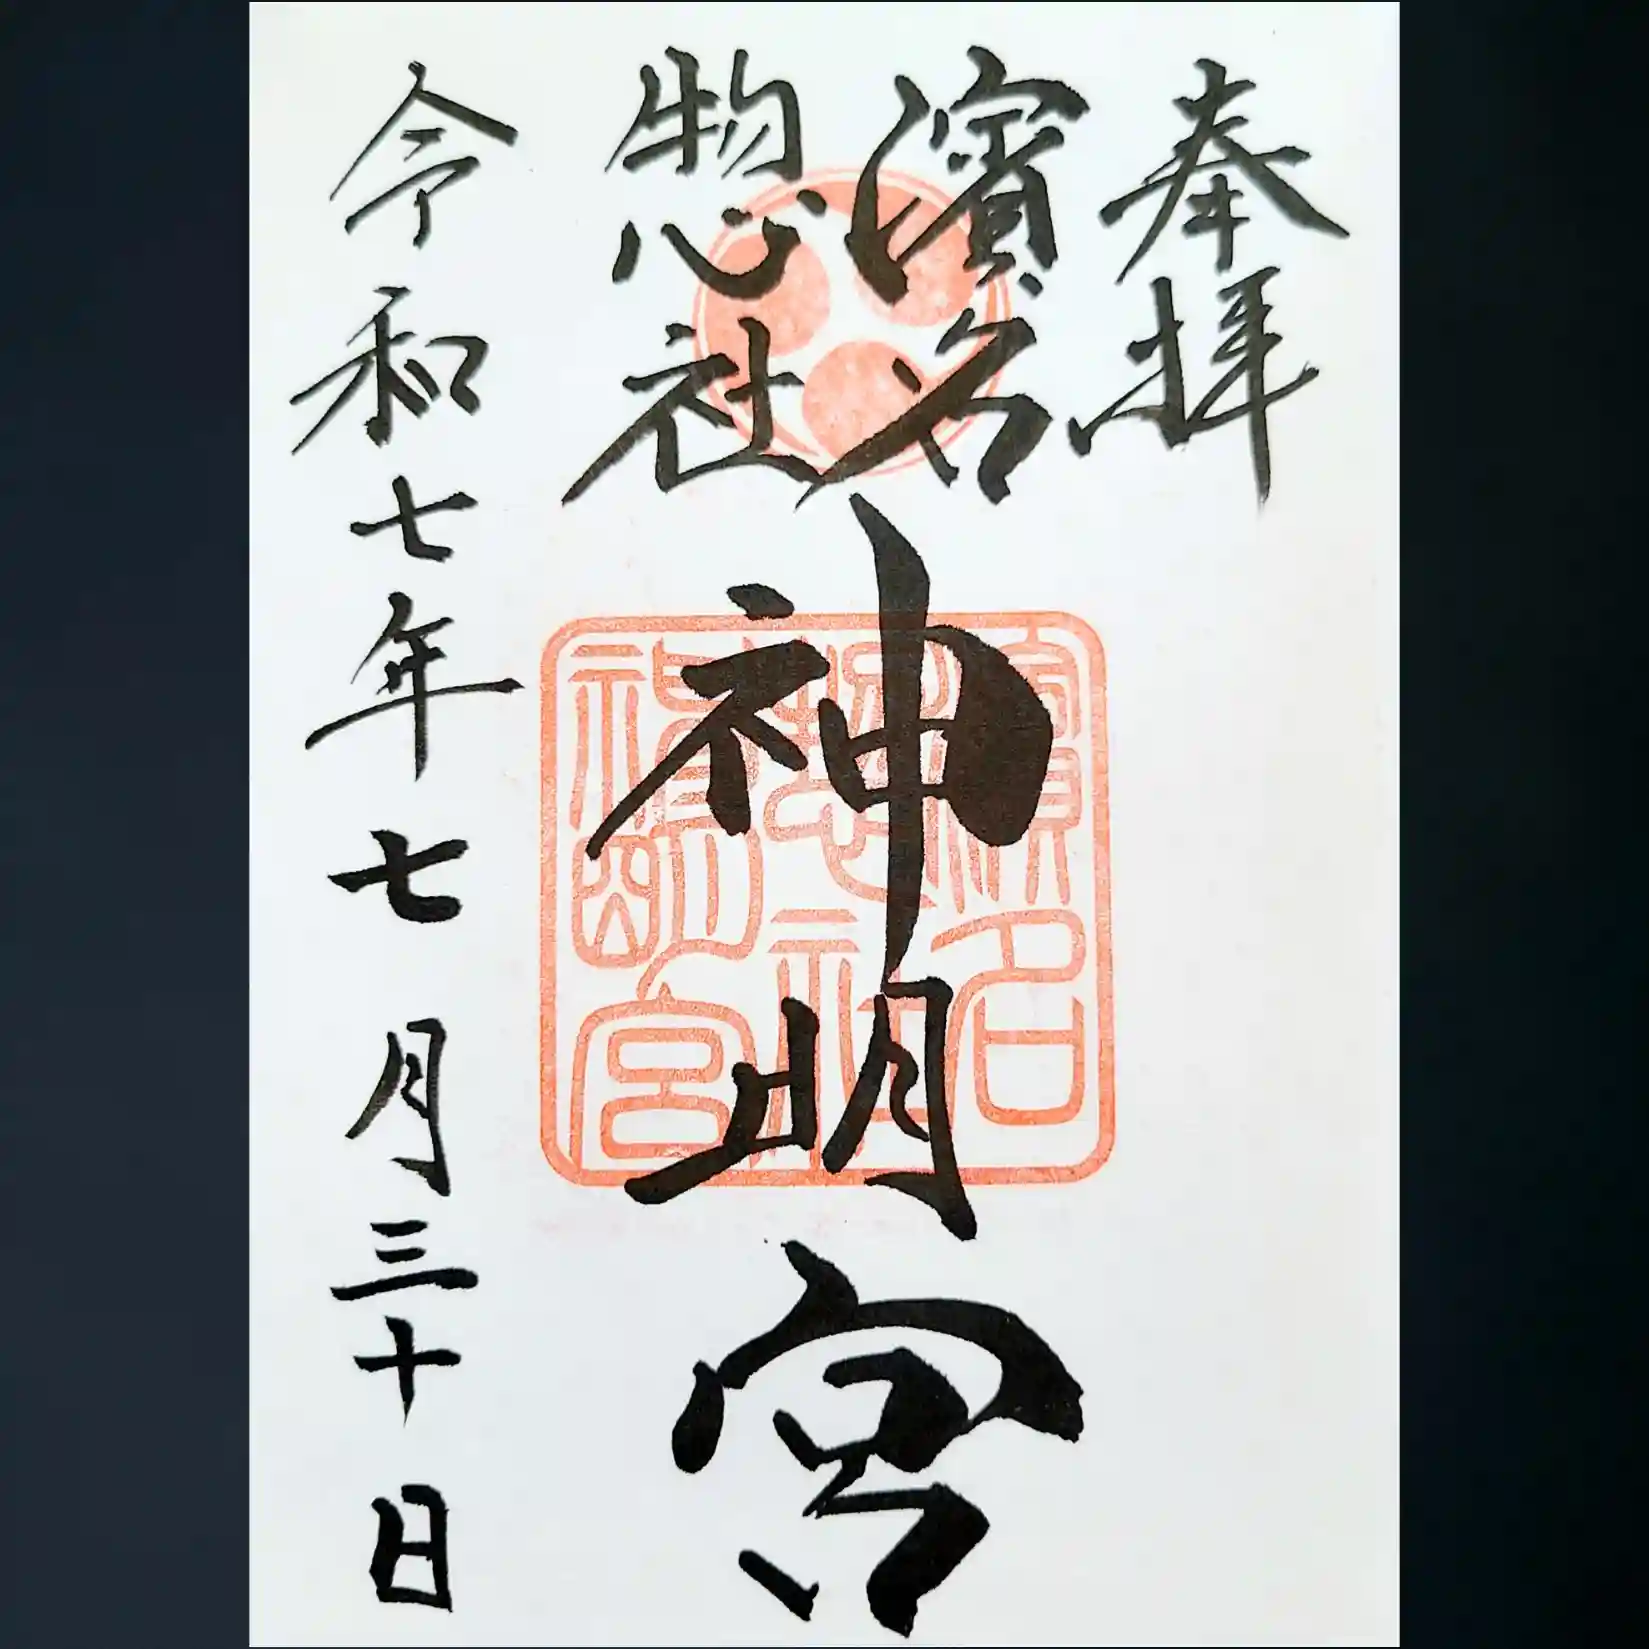 奉拝
濱名
惣社
神明宮
令和七年七月三十日
濱名
惣社
神明宮